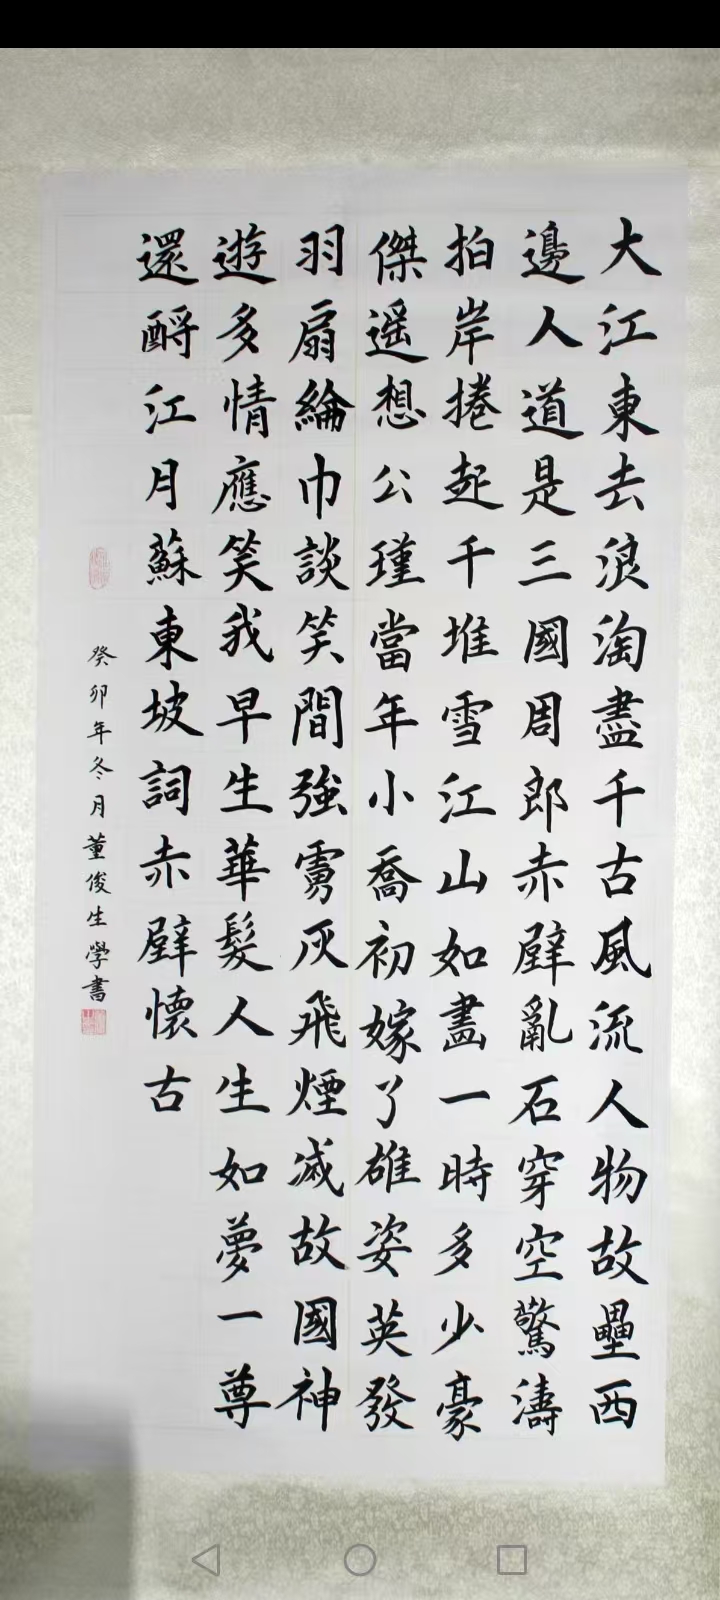 大江東去浪淘盡千古風流人物故壘西
邊人道是三國周郎赤壁亂石穿空驚濤
拍岸捲起千堆雪江山如畫一時多少豪
傑遥想公瑾當年小喬初嫁了雄姿英發
羽扇綸巾談笑間強虜灰飛煙滅故國神
遊多情應笑我早生華髮人生如夢一尊
還酹江月蘇東坡詞赤壁懷古
癸卯年冬月董俊生學書